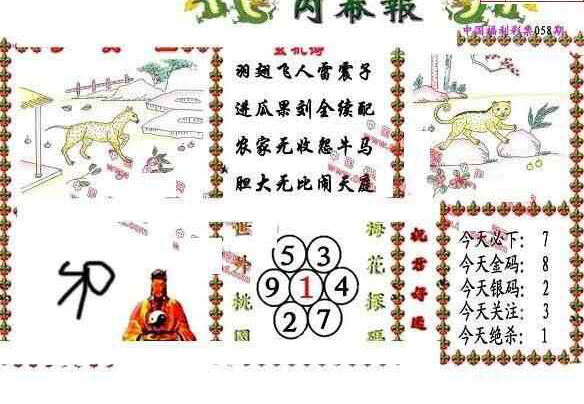 内幕報
中国福利彩票058期
玄机诗
羽翅飞人雷震子
进瓜果刘全续配
农家无收怨牛马
胆大无比闹天庭
世外桃園
5 3
9 1 4
2 7
梅花探码
机守好运
今天必下： 7
今天金码： 8
今天银码： 2
今天关注： 3
今天绝杀： 1